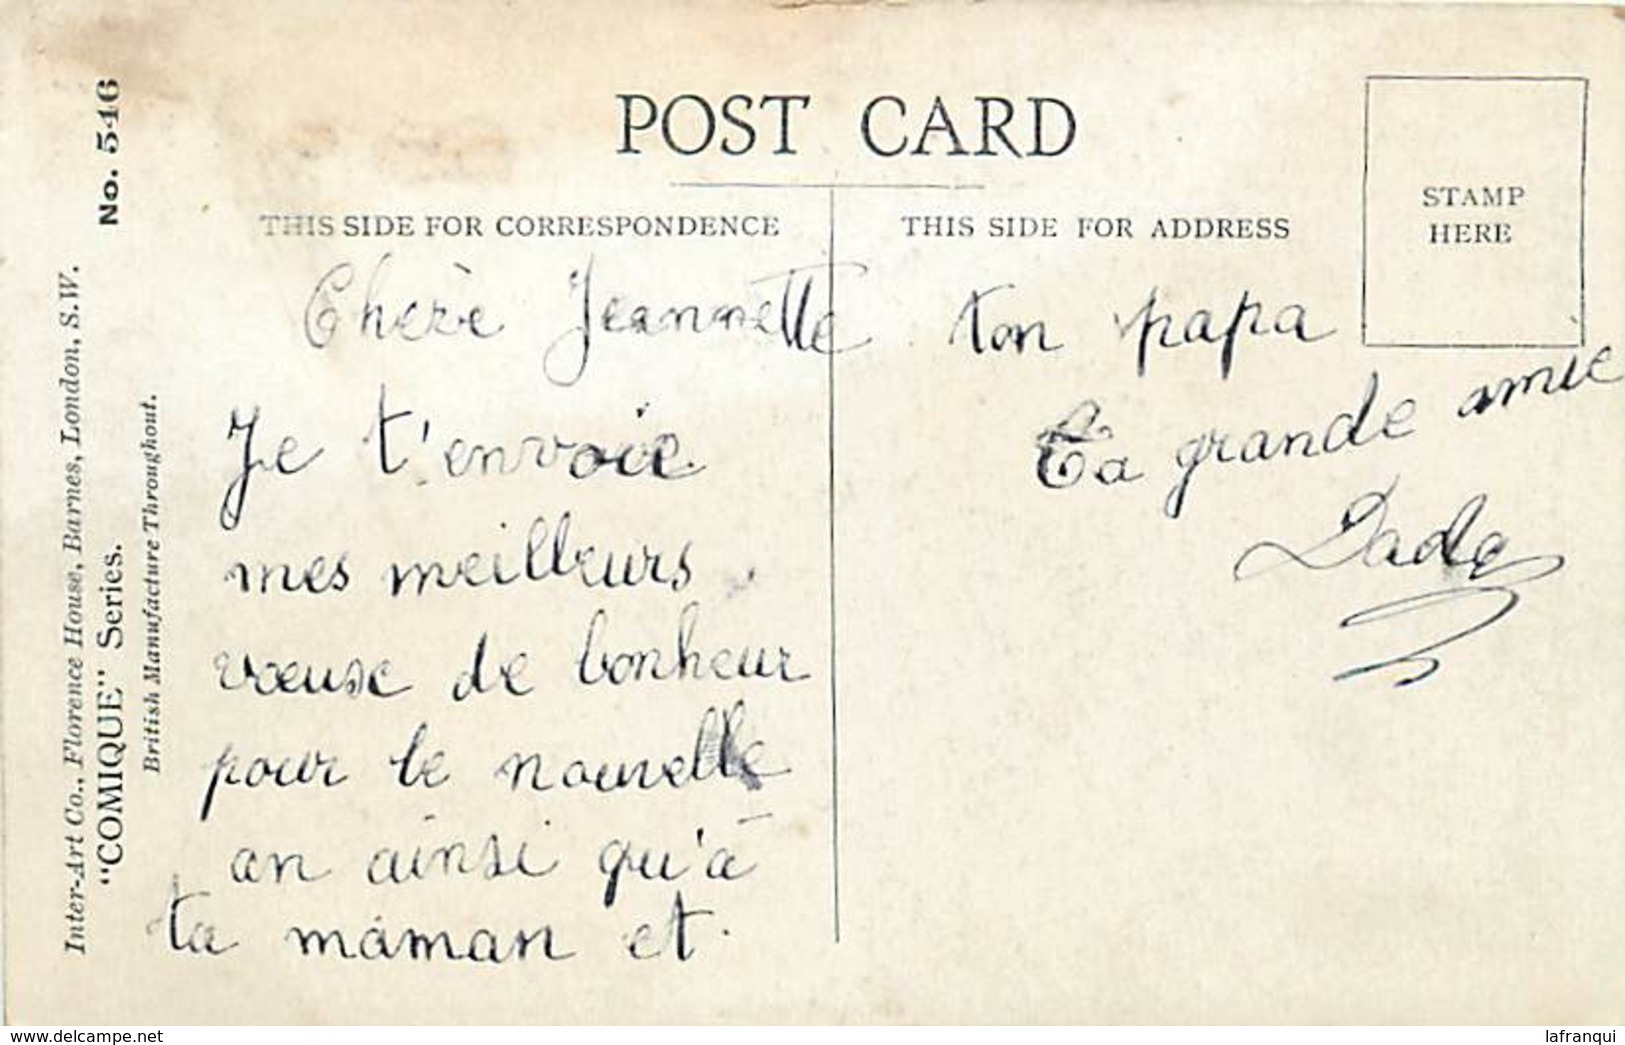 POST CARD
THIS SIDE FOR CORRESPONDENCE
THIS SIDE FOR ADDRESS
STAMP
HERE
No. 546
Inter-Art Co., Florence House, Barnes, London, S.W.
"COMIQUE" Series.
British Manufacture Throughout.
Cherè Jeannette
Je t'envoie
mes meilleurs
vœuse de bonheur
pour le nouvelle
an ainsi qu'à
ta maman et
ton papa
Ta grande amie
Dada
delcampe.net
lafranqui